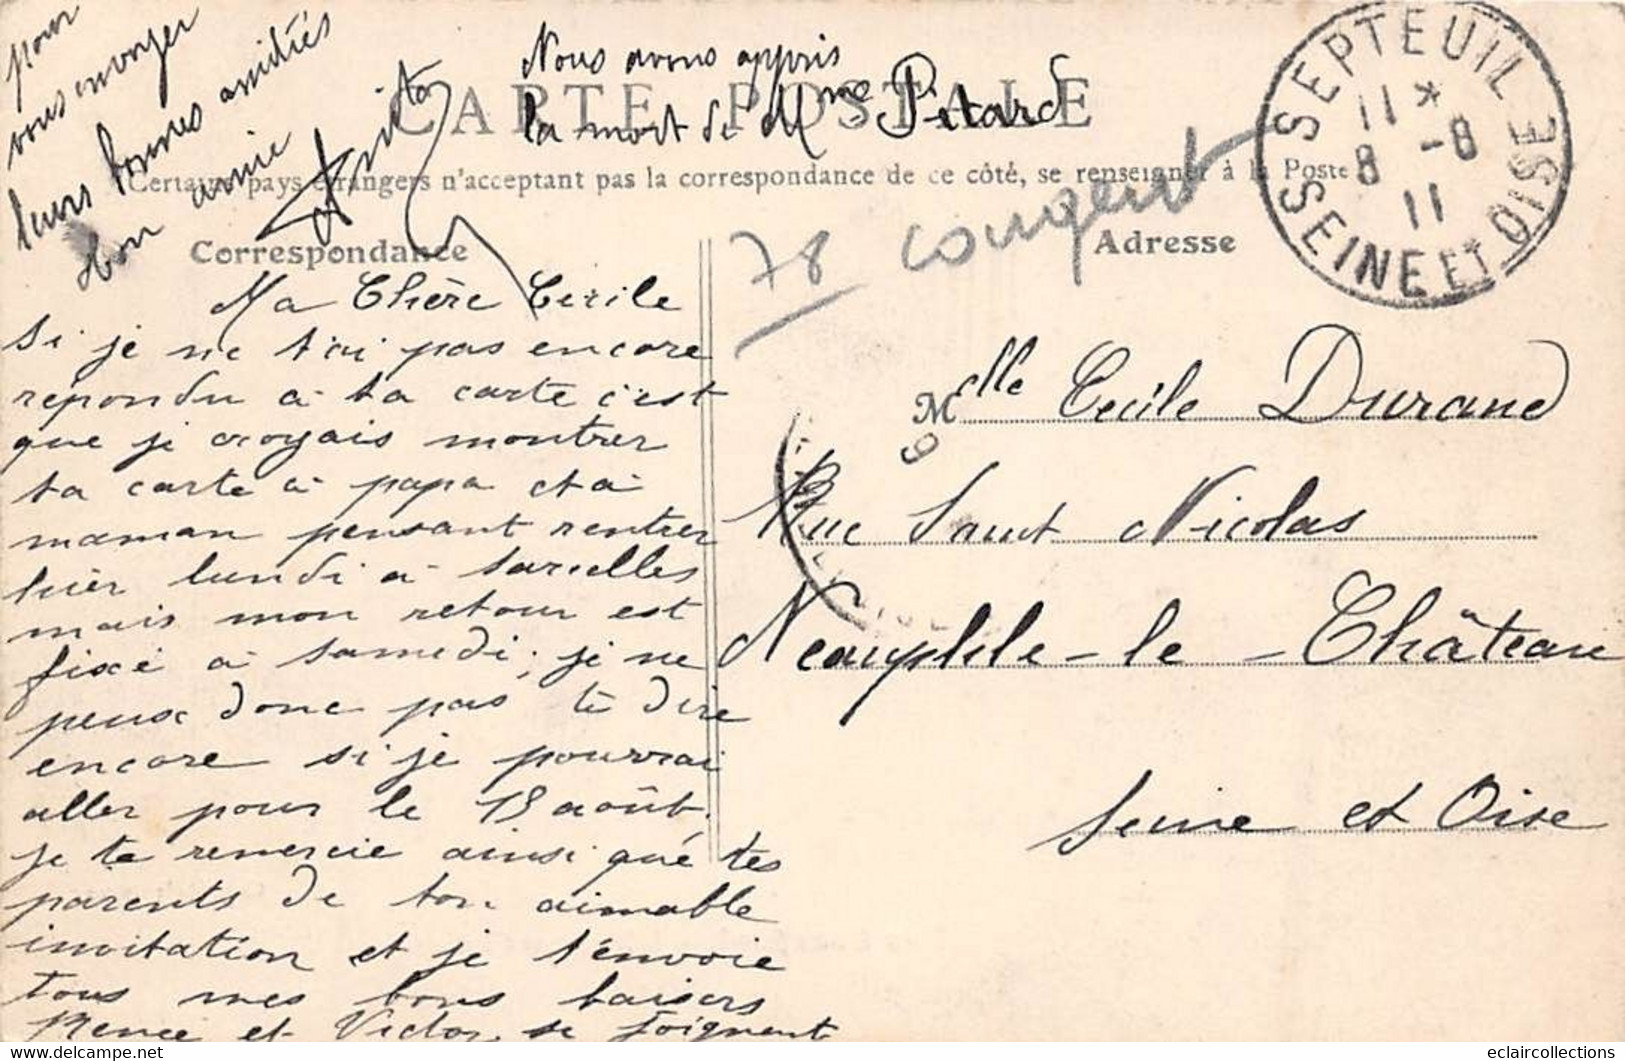 CARTE POSTALE
Certains pays étrangers n'acceptant pas la correspondance de ce côté, se renseigner à la Poste
Correspondance
Adresse
SEPTEUIL
11 *
8 -8
11
SEINE ET OISE
78 congent
Ma Chère Cecile
Si je ne t'ai pas encore
repondu à ta carte c'est
que je croyais montrer
ta carte à papa et à
maman pensant rentrer
hier lundi à Sarcelles
mais mon retour est
fixé à samedi, je ne
peux donc pas te dire
encore si je pourrai
aller pour le 15 août.
je te remercie ainsi que tes
parents de ton aimable
invitation et je t'envoie
tous mes bons baisers
Renée et Victor se joignent
pour
vous envoyer
leurs bonnes amitiés
ton amie
Anita
Nous avons appris
la mort de Mme Pitard
Melle Cecile Durand
9
Rue Saint Nicolas
Neauphle-le-Château
Seine et Oise
eclaircollections